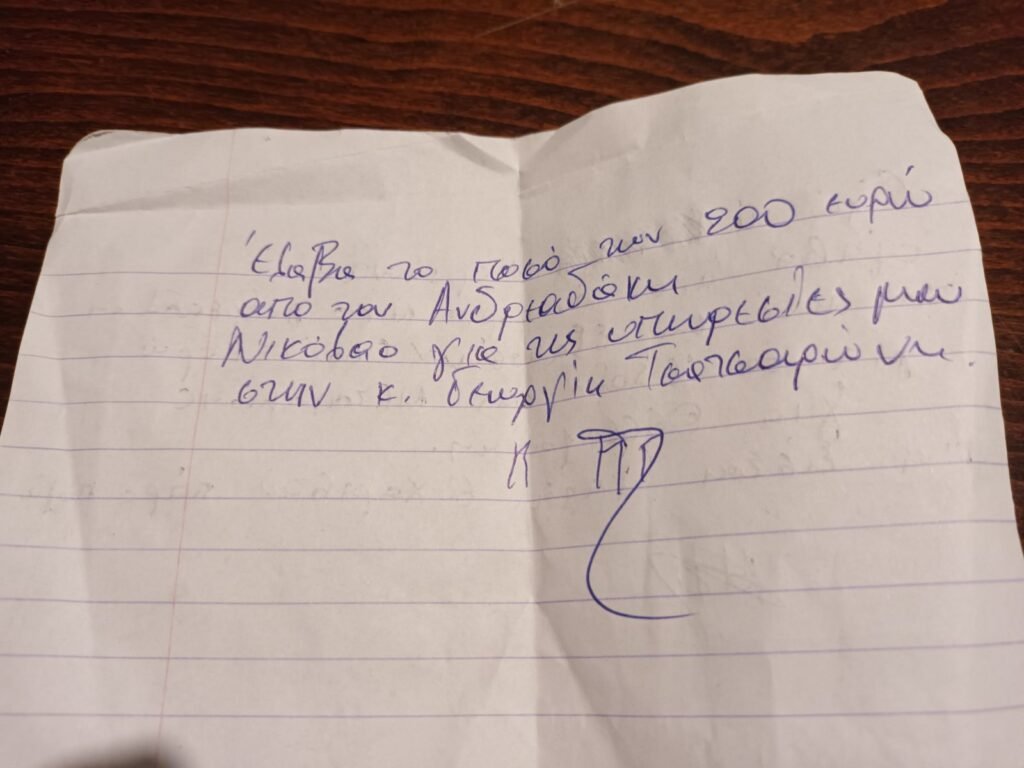 Έλαβα το ποσό των 900 ευρώ
από τον Ανδρεαδάκη
Νικόλαο για τις υπηρεσίες μου
στην κ. Γεωργία